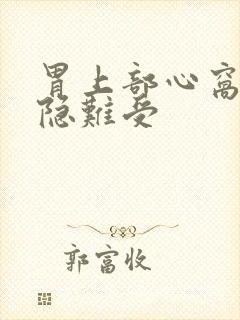 胃上部心窝
隐难受
郭富收